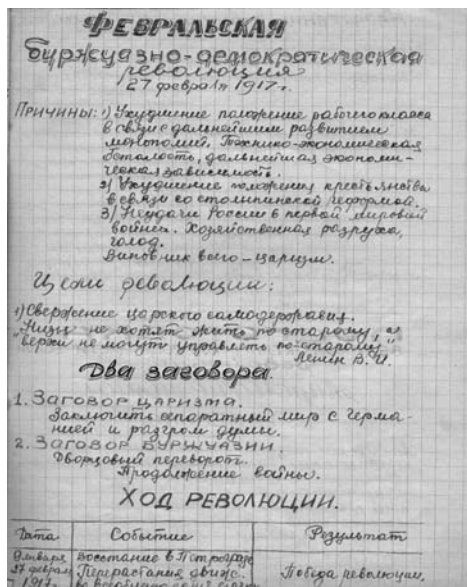 ФЕВРАЛЬСКАЯ
буржуазно-демократическая
революция
27 февраля 1917г.
ПРИЧИНЫ: 1) Ухудшение положение рабочего класса
в связи с дальнейшим развитием
монополий. Технико-экономическая
отсталость, дальнейшая экономи-
ческая зависимость.
2) Ухудшение положения крестьянства
в связи со столыпинской реформой.
3) Неудачи России в первой мировой
войне. Хозяйственная разруха,
голод.
Виновник всего - царизм.
Цели революции:
1) Свержение царского самодержавия.
"Низы не хотят жить по старому, а
верхи не могут управлять по-старому"
Ленин В.И.
Два заговора.
1. ЗАГОВОР ЦАРИЗМА.
Заключить сепаратный мир с Герма-
нией и разгром думы.
2. ЗАГОВОР БУРЖУАЗИИ.
Дворцовый переворот.
Продолжение войны.
ХОД РЕВОЛЮЦИИ.
Дата Событие Результат
9 января Восстание в Петрограде
27 феврал Перерастания движ. Победа революции
1917г.